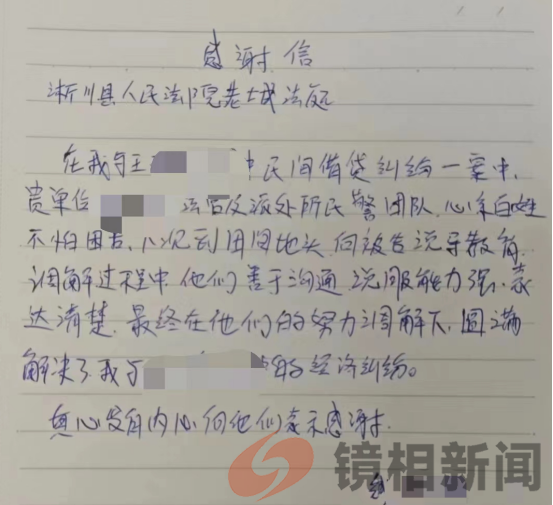 感谢信
淅川县人民法院老城法庭
在我与王 民间借贷纠纷一案中,
贵单位 法官及派处所民警团队,心系百姓
不怕困苦,八次到田间地头,向被告说导教育,
调解过程中他们善于沟通,说服能力强,表
达清楚,最终在他们的努力调解下,圆满
解决了我与 的经济纠纷。
真心发自内心向他们表示感谢.
镜相新闻